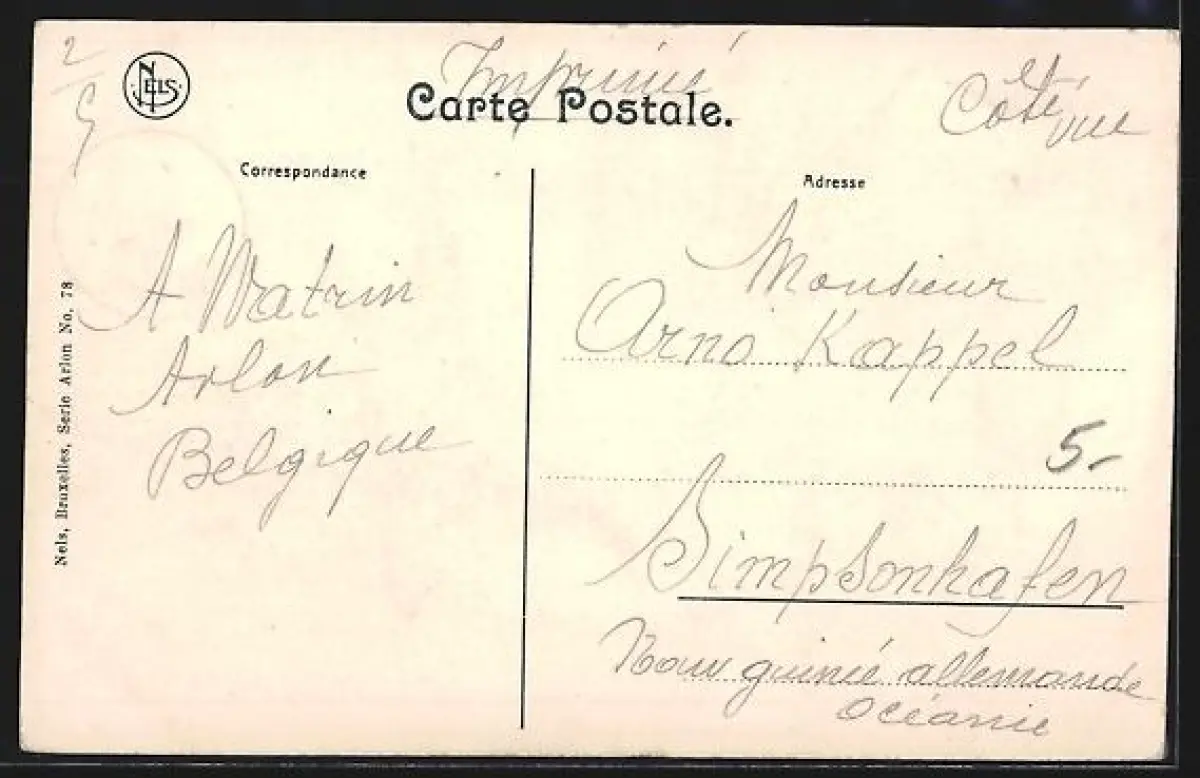 2
NELS
Imprimé
Carte Postale.
Côté vue
Correspondance
Adresse
A Watrin
Arlon
Belgique
Monsieur
Arno Kappel
5-
Simpsonhafen
Nouv guinée allemande
océanie
Nels, Bruxelles, Serie Arlon No. 78